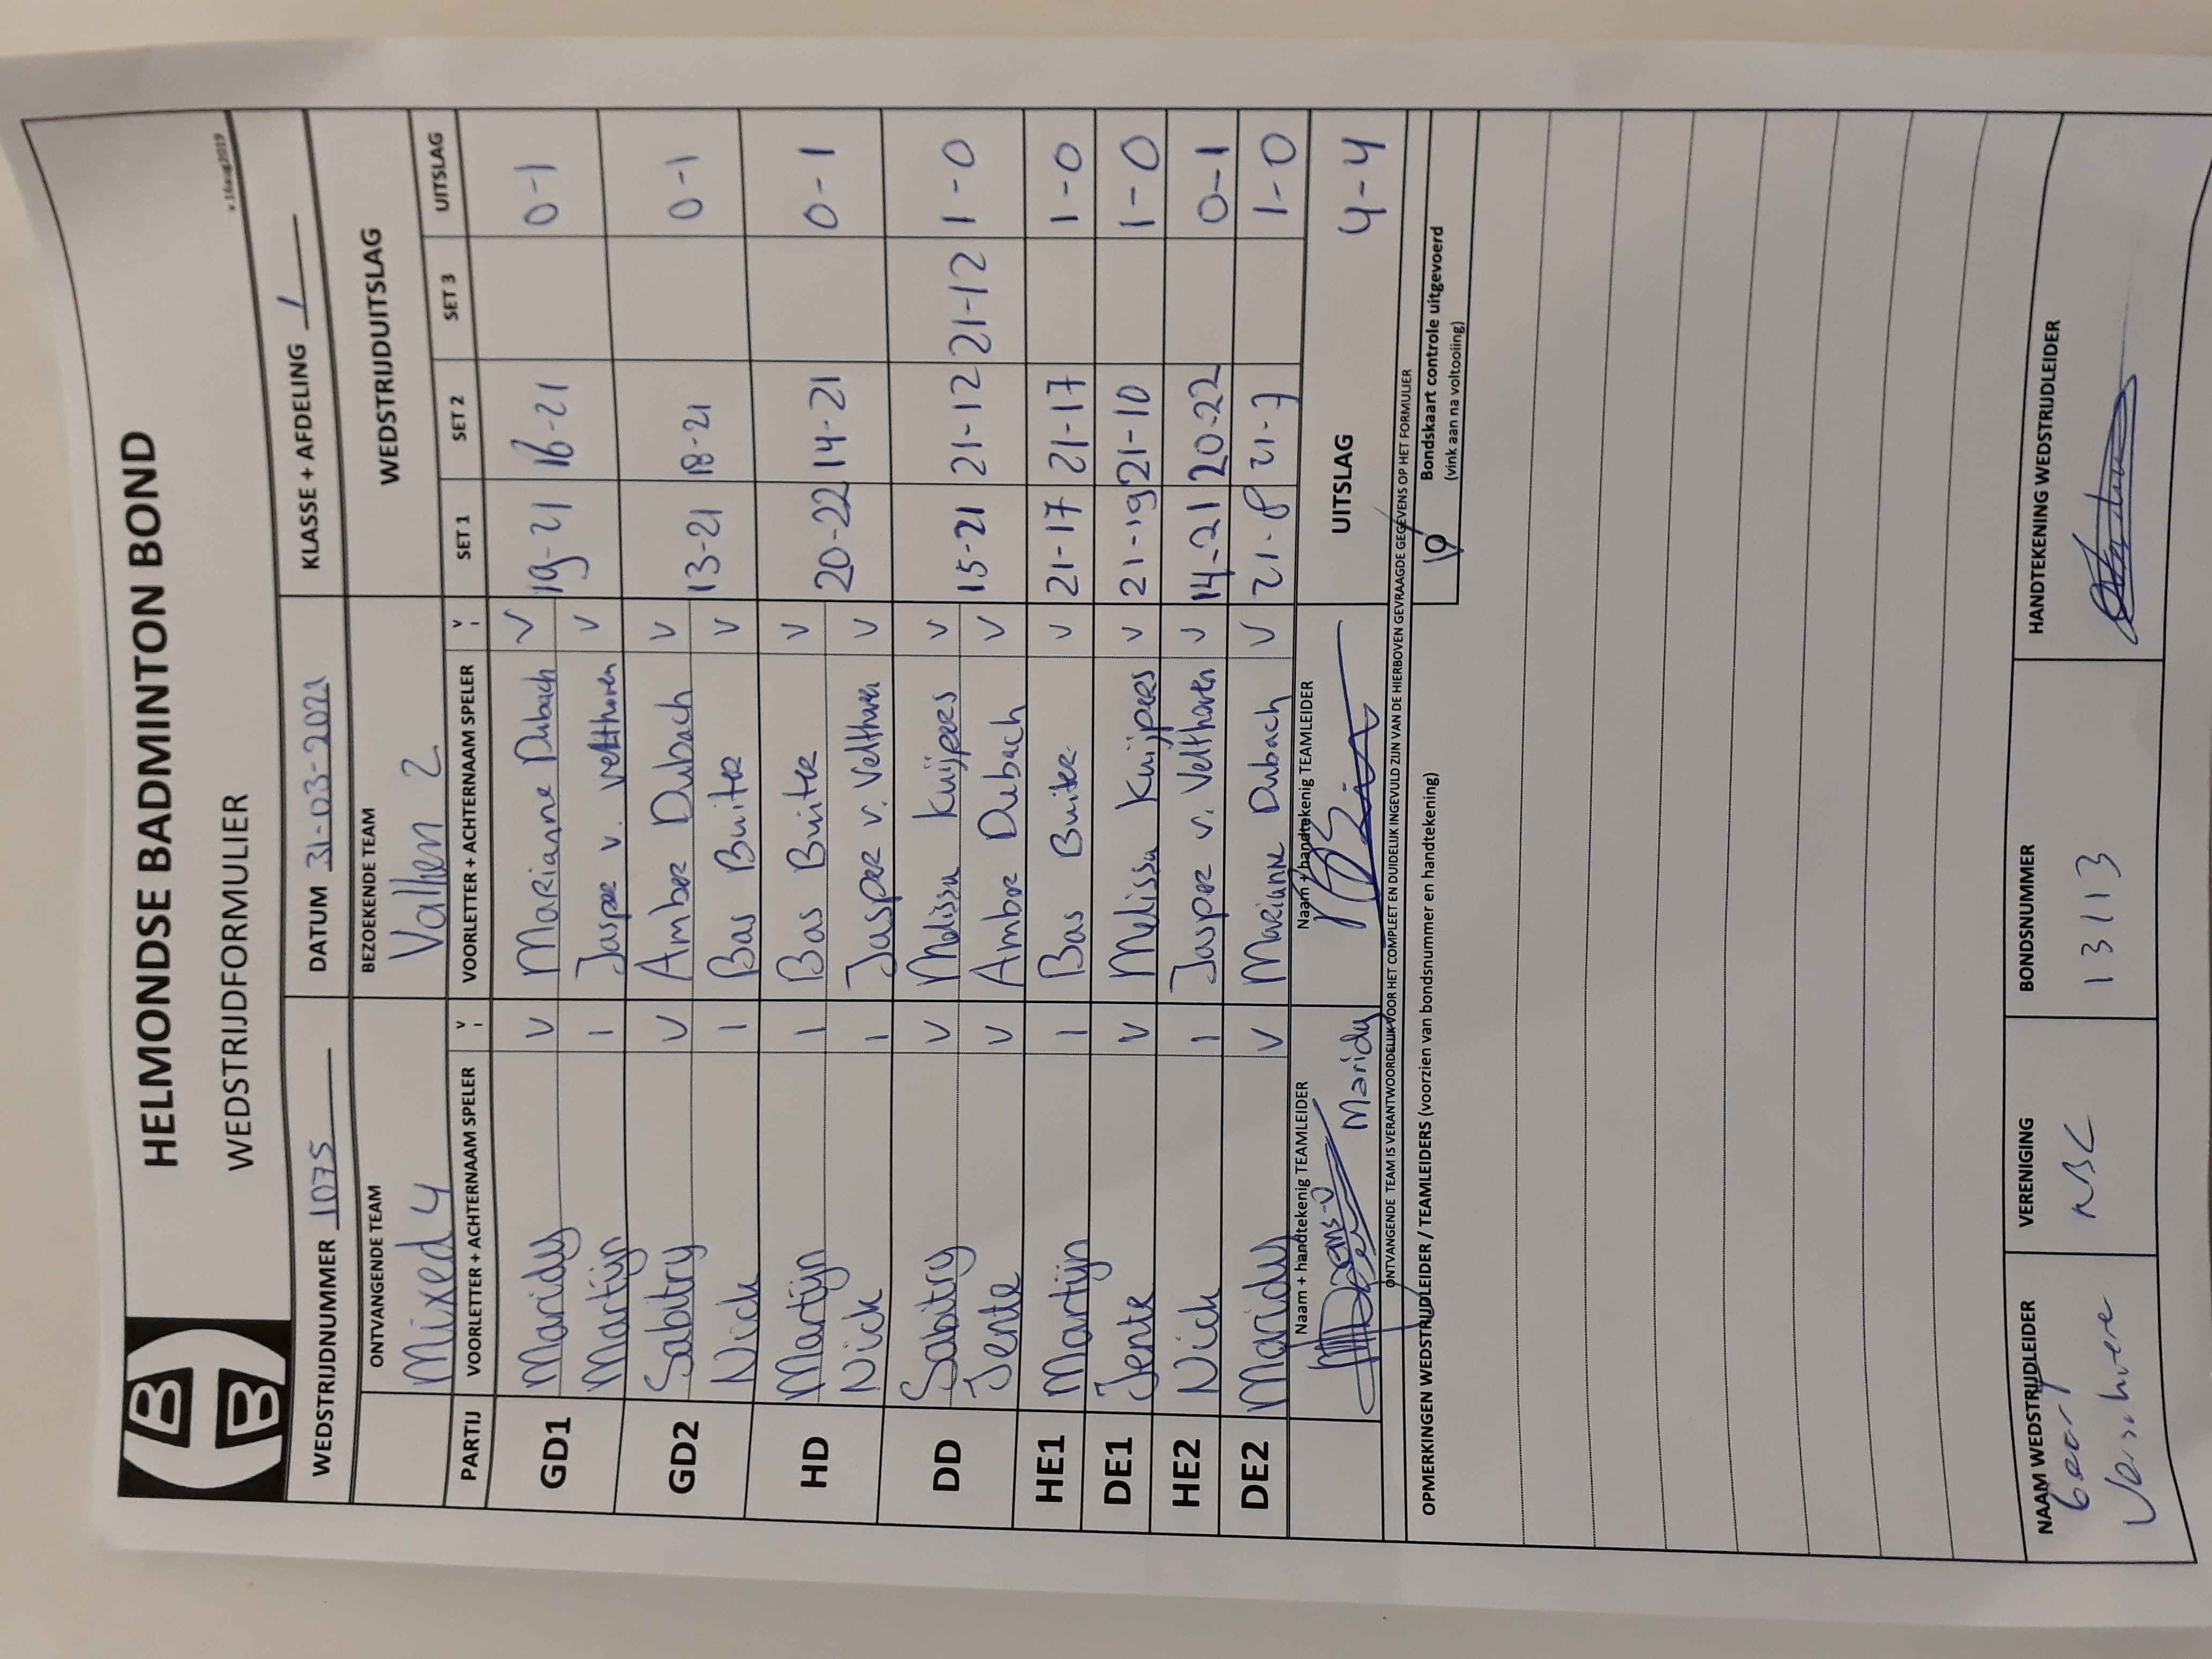 HELMONDSE BADMINTON BOND
v.16aug2019
WEDSTRIJDFORMULIER
WEDSTRIJDNUMMER 1075 DATUM 31-03-2022 KLASSE + AFDELING 1
ONTVANGENDE TEAM BEZOEKENDE TEAM WEDSTRIJDUITSLAG
Mixed 4
PARTIJ VOORLETTER + ACHTERNAAM SPELER V VOORLETTER + ACHTERNAAM SPELER V SET 1 SET 2 SET 3 UITSLAG
GD1 Maridy V Marianne Dubach V 19-21 16-21 0-1
Martijn I Jasper v. Velthoven V
GD2 Sabitry V Amber Dubach V 13-21 18-21 0-1
Nick I Bas Buiter V
HD Martijn I Bas Buiter V 20-22 14-21 0-1
Nick I Jasper v. Velthoven V
DD Sabitry V Melissa Kuijpers V 15-21 21-12 21-12 1-0
Jente V Amber Dubach V
HE1 Martijn I Bas Buiter V 21-17 21-17 1-0
DE1 Jente V Melissa Kuijpers V 21-19 21-10 1-0
HE2 Nick I Jasper v. Velthoven V 14-21 20-22 0-1
DE2 Maridy V Marianne Dubach V 21-8 21-7 1-0
Naam + handtekenig TEAMLEIDER Naam + handtekenig TEAMLEIDER UITSLAG 4-4
Maridy
ONTVANGENDE TEAM IS VERANTWOORDELIJK VOOR HET COMPLEET EN DUIDELIJK INGEVULD ZIJN VAN DE HIERBOVEN GEVRAAGDE GEGEVENS OP HET FORMULIER
OPMERKINGEN WEDSTRIJDLEIDER / TEAMLEIDERS (voorzien van bondsnummer en handtekening) Bondskaart controle uitgevoerd
(vink aan na voltooiing)
NAAM WEDSTRIJDLEIDER VERENIGING BONDSNUMMER HANDTEKENING WEDSTRIJDLEIDER
NBC 13113